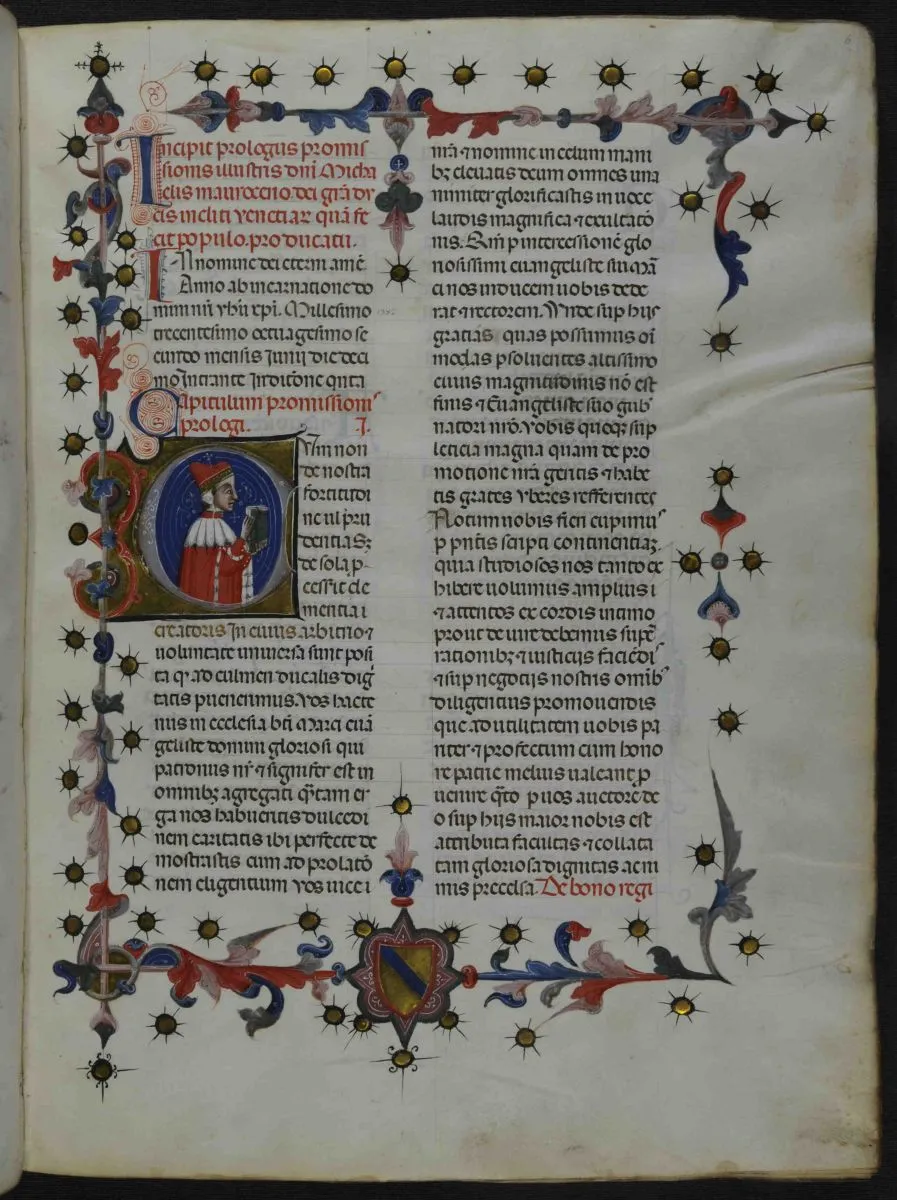 Incipit prologus promis
sionis illustris dnī Micha
elis mauroceno. dei grā du
cis incliti venetiaꝝ quā fe
cit populo. pro ducatu.
In nomine dei eterni amē.
Anno ab incarnatione do
mini nrī yhū xpī. Millesimo
trecentesimo octuagesimo se
cundo mensis Junii die deci
mo Intrante Inditōne qnta
Capitulum promissionis
prologi. I.
Cum non
de nostra
fortitudi
ne ul pru
dentia Sꝫ
de sola p
cessit cle
mentia
creatoris In cuius arbitrio ⁊
voluntate universa sunt posi
ta qꝫ ad culmen ducalis dig
tatis puenerimus. vos hacte
nus in ecclesia bti Marci euā
geliste domini gloriosi qui
patronus nr̄ ⁊ signifer est in
omnibꝫ agregati q̄tam er
ga nos habueritis dulcedi
nem caritatis ibi perfecte de
mostrastis cum ad prolatō
nem eligentium vos uice i
nrā ⁊ nomine in celum mani
bꝫ eleuatis deum omnes una
nimiter glorificastis in uoce
laudis magnifica ⁊ exultatō
nis. Qm̄ p intercessionē glo
riosissimi euangeliste sui Mā
ci nos in ducem uobis dede
rat ⁊ rectorem. Unde sup hijs
gratias quas possumus oī
modas psoluentes altissimo
cuius magnitudinis nō est
finis ⁊ Euangeliste suo gub
natori nrō. vobis quoqꝫ sup
leticia magna quam de pro
motione nrā geritis ⁊ habe
tis grates vberes refferentes
Notum uobis fieri cupimus
p pntis scripti continentiaꝫ.
quia studiosos nos tanto ex
hibere uolumus amplius i
⁊ attentos ex cordis intimo
prout de iure debemus supē
rationibꝫ ⁊ iusticijs faciēdis
⁊ sup negotijs nostris omibꝫ
diligentius promouendis
que ad utilitatem uobis pa
riter ⁊ profectum cum hono
re patrie melius ualeant p
uenire q̄to p uos auctore de
o sup hijs maior nobis est
attributa facultas ⁊ collata
tam gloriosa dignitas ac ni
mis precelsa. De bono regi